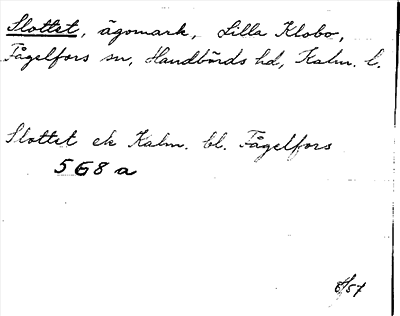 Slottet, ägomark, Lilla Klobo,
Fågelfors sn, Handbörds hd, Kalm. l.
Slottet ek Kalm. bl. Fågelfors
568 a
/57